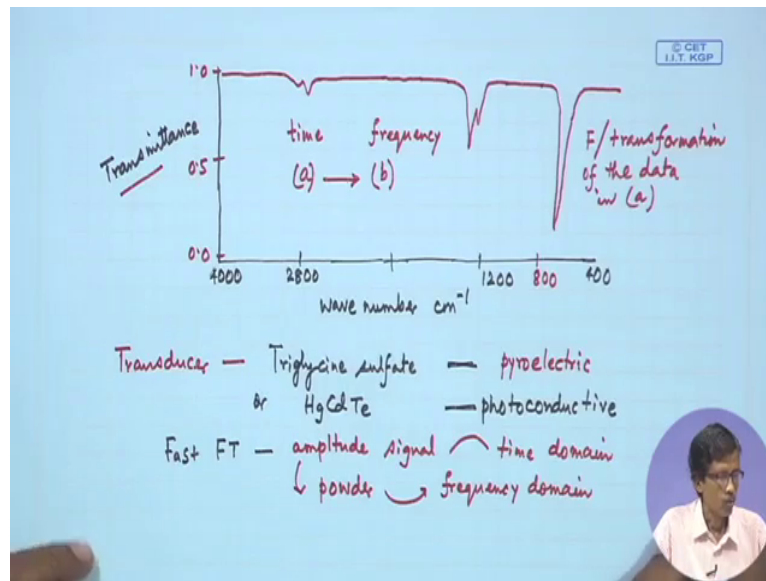 © CET
I.I.T. KGP
1.0
Transmittance
time frequency
F/transformation
0.5
(a) → (b)
of the data
in (a)
0.0
4000 2800 1200 800 400
wave number cm⁻¹
Transducer — Triglycine sulfate — pyroelectric
or HgCdTe — photoconductive
Fast FT — amplitude signal time domain
↳ powder frequency domain